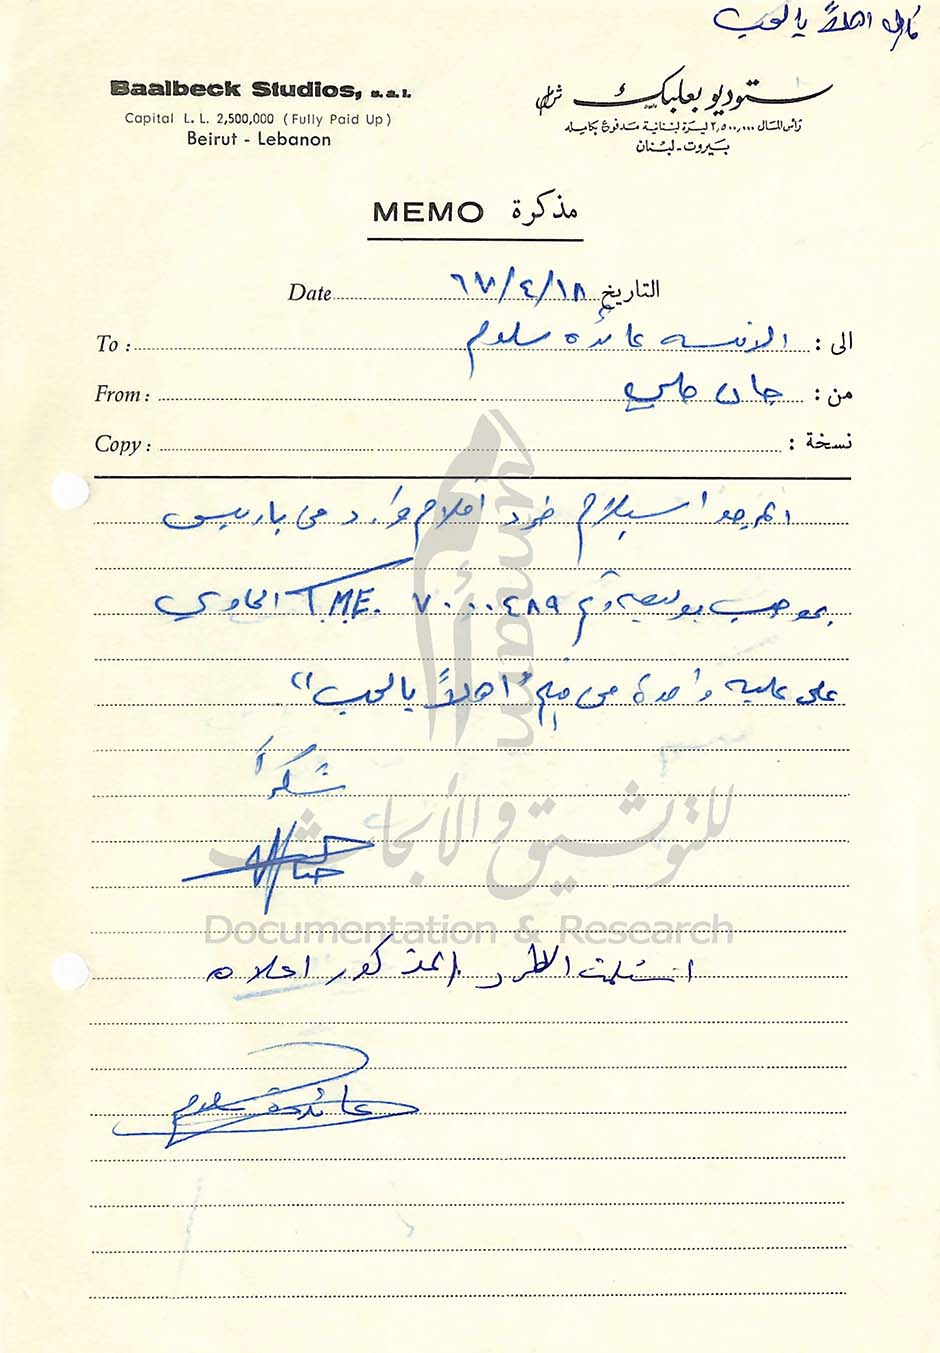 اهلاً يا لحب
Baalbeck Studios, s.a.l.
ستوديو بعلبك ش.م.ل
Capital L. L. 2,500,000 (Fully Paid Up)
رأس المال ٢,٥٠٠,٠٠٠ ليرة لبنانية مدفوع بكامله
Beirut - Lebanon
بيروت - لبنان
MEMO مذكرة
Date ٦٧/٤/١٨ التاريخ
To : الانسه عائده سلوم الى :
From : جان من :
Copy : نسخة :
المرجو استلام طرد افلام وارد من باريس
بموجب بوليصه رقم ٧٠٠٠٤٨٩ T.M.E. الحاوي
على علبه واحدة من فيلم "اهلاً يا لحب"
شكراً
استلمت الطرد المذكور اعلاه
عائدة سلوم
umam
أمم
للتوثيق والأبحاث
Documentation & Research